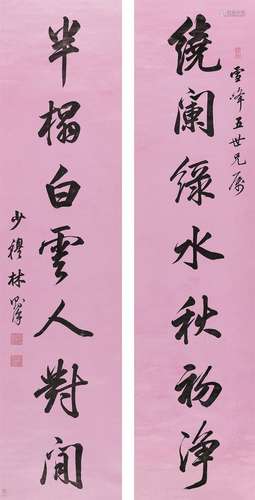 繞闌綠水秋初淨
雪峰五世兄屬
半榻白雲人對閒
少穆林則徐